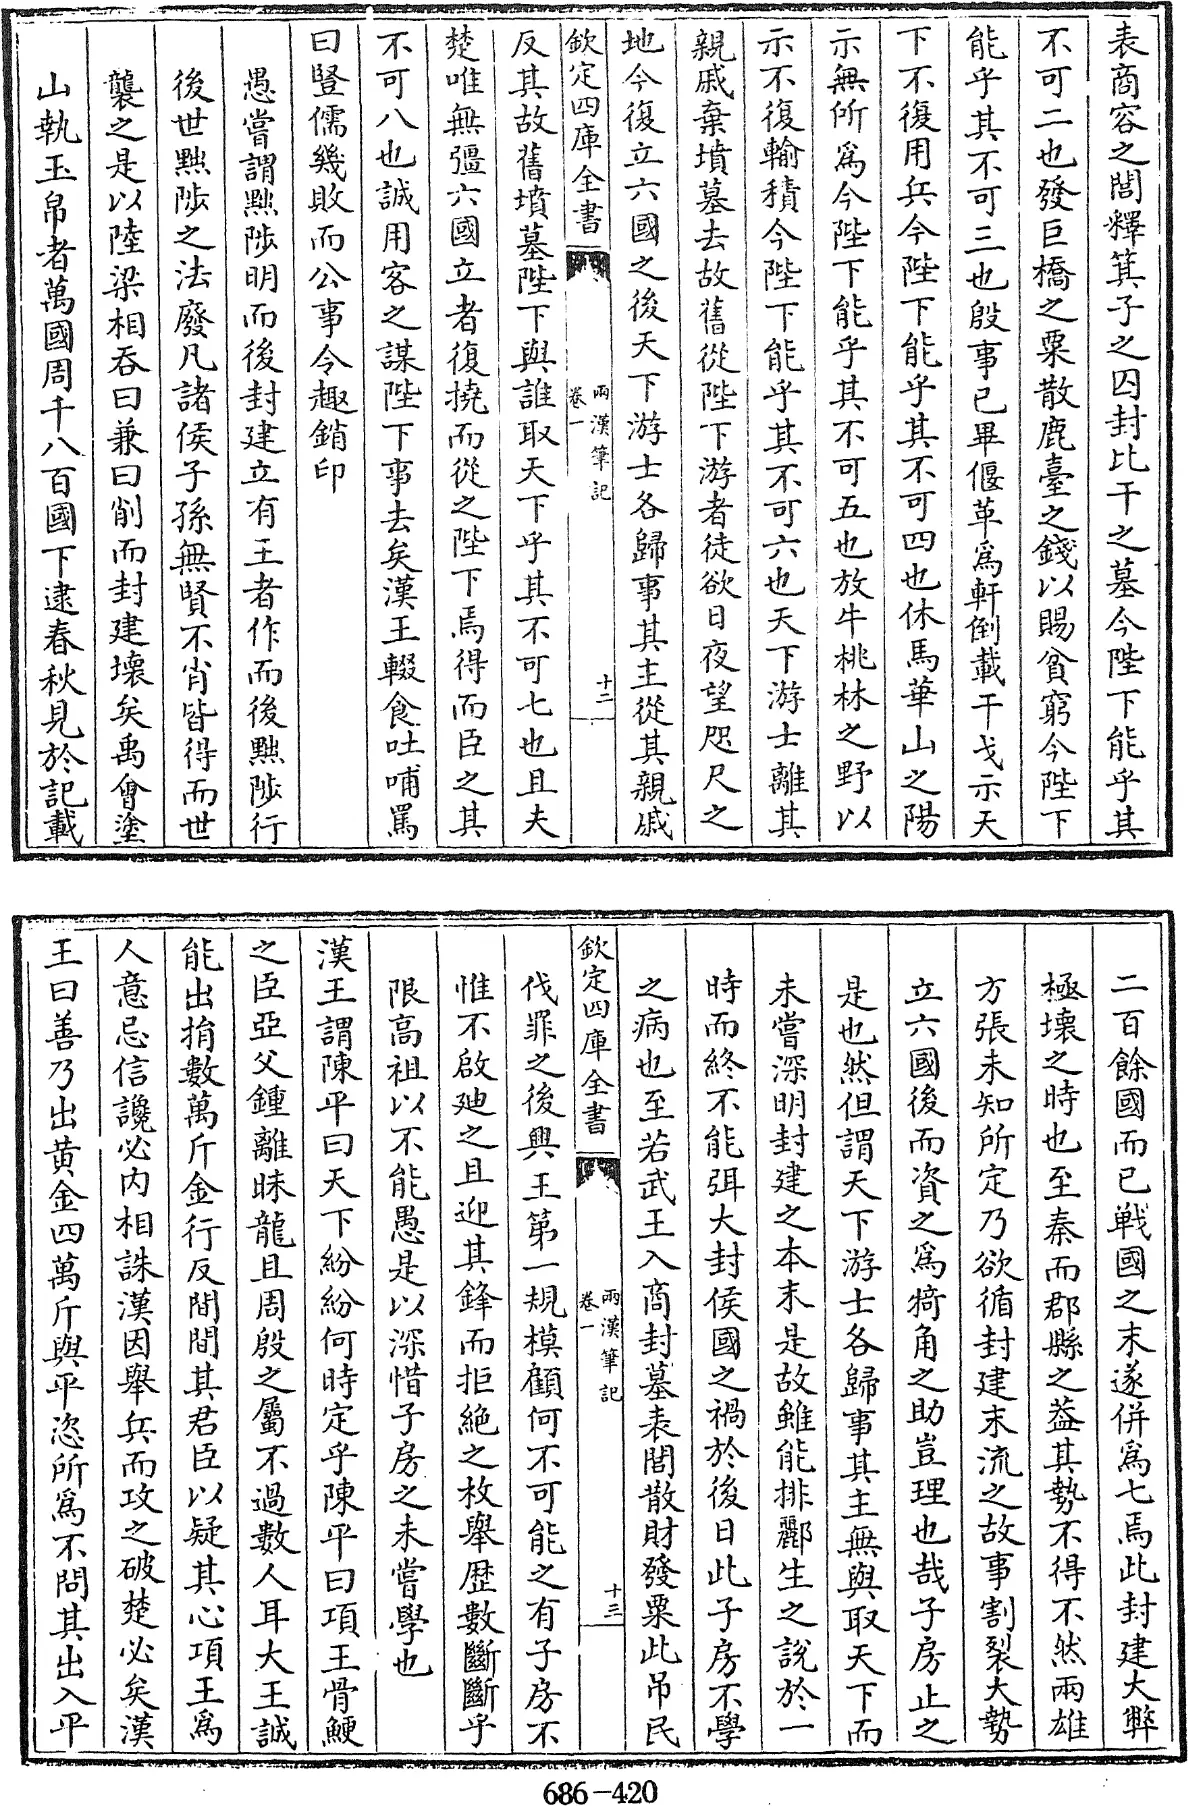 表商容之閭釋箕子之囚封比干之墓今陛下能乎其
不可二也發巨橋之粟散鹿臺之錢以賜貧窮今陛下
能乎其不可三也殷事已畢偃革爲軒倒載干戈示天
下不復用兵今陛下能乎其不可四也休馬華山之陽
示無所爲今陛下能乎其不可五也放牛桃林之野以
示不復輸積今陛下能乎其不可六也天下游士離其
親戚棄墳墓去故舊從陛下游者徒欲日夜望咫尺之
地今復立六國之後天下游士各歸事其主從其親戚
欽定四庫全書
兩漢筆記
卷一
十二
反其故舊墳墓陛下與誰取天下乎其不可七也且夫
楚唯無彊六國立者復撓而從之陛下焉得而臣之其
不可八也誠用客之謀陛下事去矣漢王輟食吐哺罵
曰豎儒幾敗而公事令趣銷印
愚嘗謂黜陟明而後封建立有王者作而後黜陟行
後世黜陟之法廢凡諸侯子孫無賢不肖皆得而世
襲之是以陸梁相吞曰兼曰削而封建壞矣禹會塗
山執玉帛者萬國周千八百國下逮春秋見於記載
二百餘國而已戰國之末遂併爲七焉此封建大弊
極壞之時也至秦而郡縣之葢其勢不得不然兩雄
方張未知所定乃欲循封建末流之故事割裂大勢
立六國後而資之爲犄角之助豈理也哉子房止之
是也然但謂天下游士各歸事其主無與取天下而
未嘗深明封建之本末是故雖能排酈生之說於一
時而終不能弭大封侯國之禍於後日此子房不學
之病也至若武王入商封墓表閭散財發粟此吊民
欽定四庫全書
兩漢筆記
卷一
十三
伐罪之後興王第一規模顧何不可能之有子房不
惟不啟廸之且迎其鋒而拒絶之枚舉歴數斷斷乎
限高祖以不能愚是以深惜子房之未嘗學也
漢王謂陳平曰天下紛紛何時定乎陳平曰項王骨鯁
之臣亞父鍾離昧龍且周殷之屬不過數人耳大王誠
能出捐數萬斤金行反間間其君臣以疑其心項王爲
人意忌信讒必内相誅漢因舉兵而攻之破楚必矣漢
王曰善乃出黄金四萬斤與平恣所爲不問其出入平
686-420